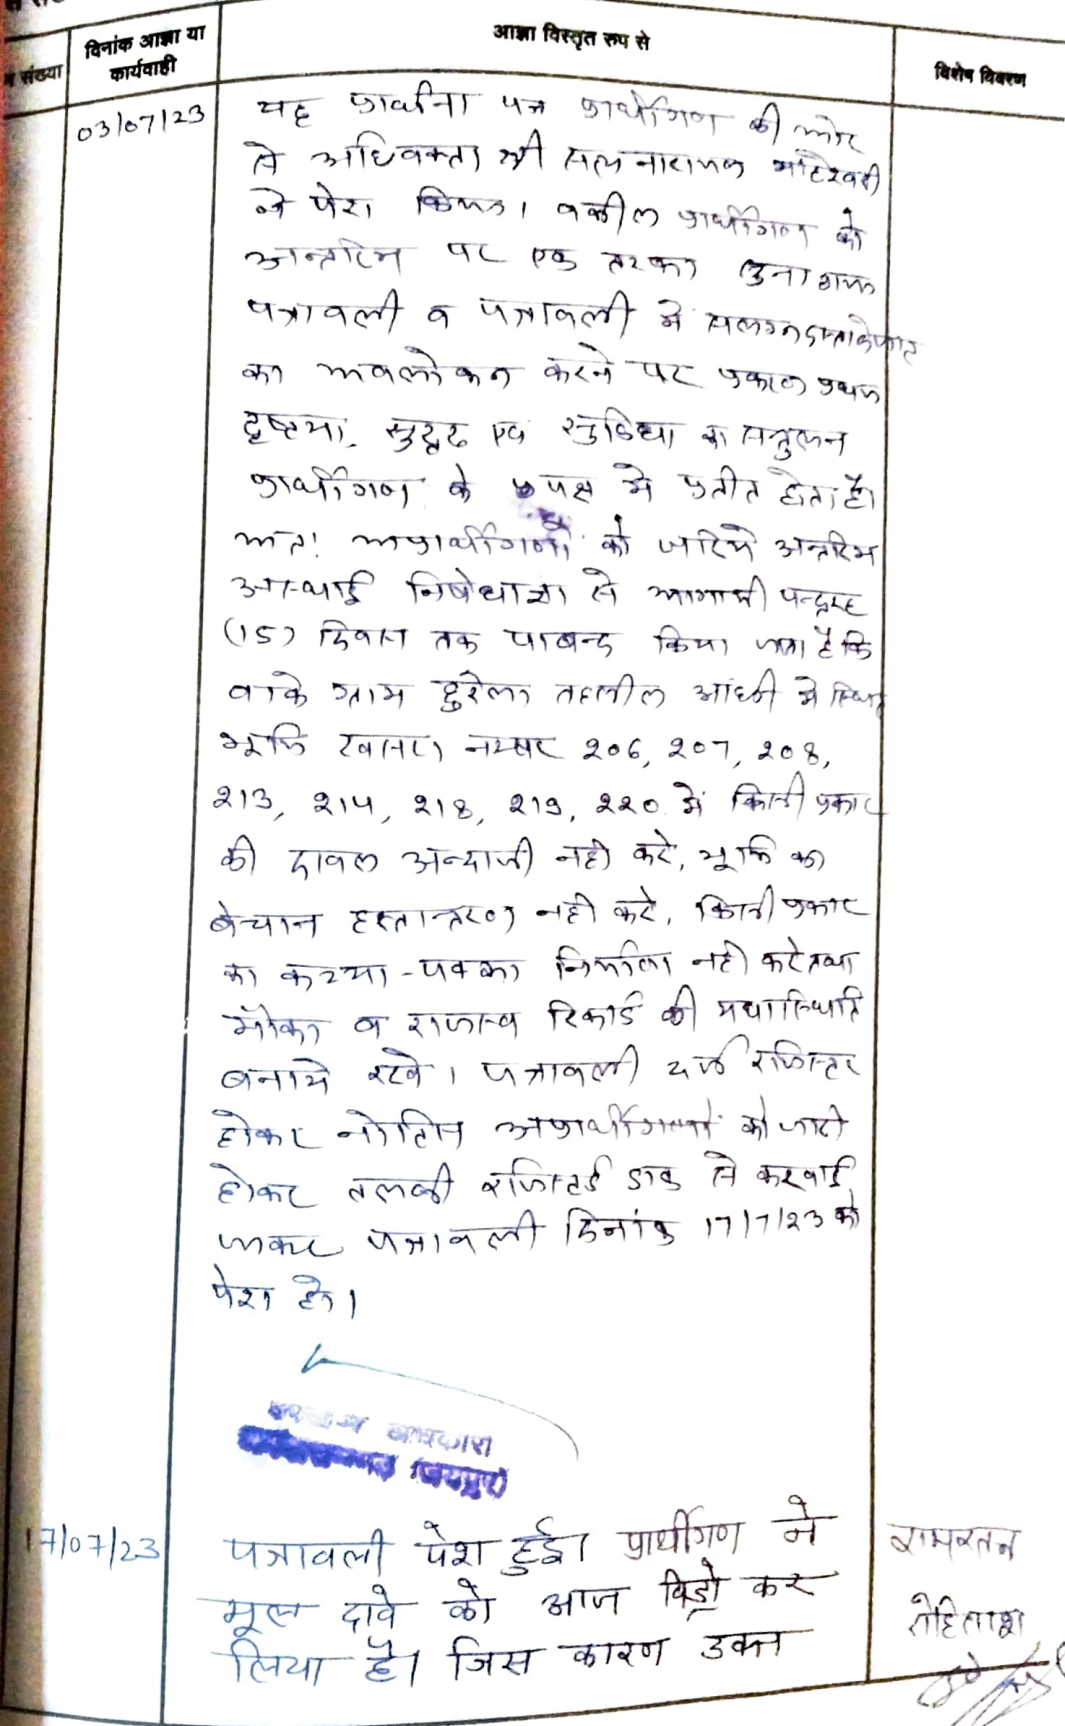 संख्या
दिनांक आज्ञा या
कार्यवाही
आज्ञा विस्तृत रूप से
विशेष विवरण
03/07/23
यह प्रार्थना पत्र प्रार्थीगण की ओर
से अधिवक्ता श्री सत्यनारायण
ने पेश किया। वकील प्रार्थीगण को
अन्तरिम पर एक तरफा सुना गया
पत्रावली व पत्रावली में संलग्न दस्तावेजात
का अवलोकन करने पर प्रकरण प्रथम
दृष्टया, सुदृढ एवं सुविधा का सन्तुलन
प्रार्थीगण के पक्ष में प्रतीत होता है।
अतः अप्रार्थीगणों को जरिये अन्तरिम
अस्थाई निषेधाज्ञा से आगामी पन्द्रह
(15) दिवस तक पाबन्द किया जाता है कि
वाके ग्राम तहसील आंधी में स्थित
भूमि खसरा नम्बर 206, 207, 208,
213, 214, 218, 219, 220 में किसी प्रकार
की दखल अन्दाजी नहीं करे, भूमि का
बेचान हस्तान्तरण नहीं करे, किसी प्रकार
का कच्चा-पक्का निर्माण नहीं करे तथा
मौका व राजस्व रिकार्ड की यथास्थिति
बनाये रखे। पत्रावली दर्ज रजिस्टर
होकर नोटिस अप्रार्थीगणों को जारी
होकर तलबी रजिस्टर्ड डाक से करवाई
जाकर पत्रावली दिनांक 17/7/23 को
पेश हो।
17/07/23
पत्रावली पेश हुई। प्रार्थीगण ने
मूल दावे को आज विड्रो कर
लिया है। जिस कारण उक्त
रामरतन